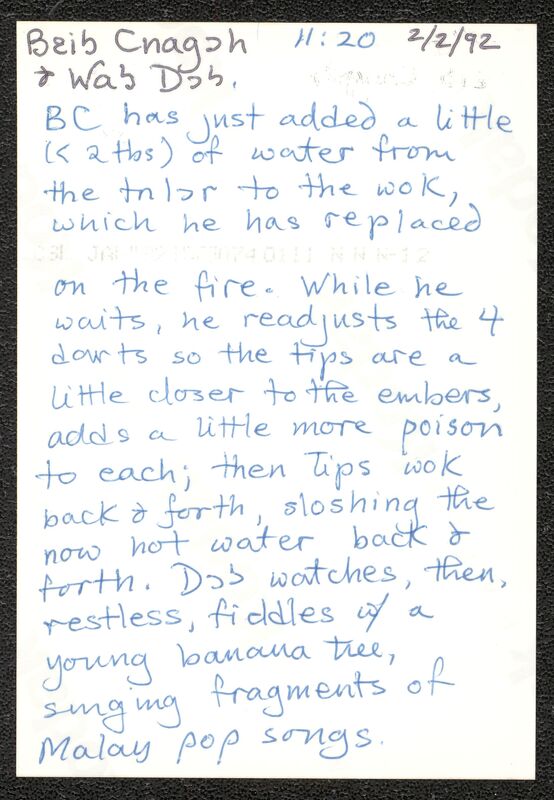 Bɛib Cnagɔh 11:20 2/2/92
& Waʖ Dɔʖ.
BC has just added a little
(< 2 tbs) of water from
the tnlɔr to the wok,
which he has replaced
on the fire. While he
waits, he readjusts the 4
darts so the tips are a
little closer to the embers,
adds a little more poison
to each; then tips wok
back & forth, sloshing the
now hot water back &
forth. Dɔʖ watches, then,
restless, fiddles w/ a
young banana tree,
singing fragments of
Malay pop songs.